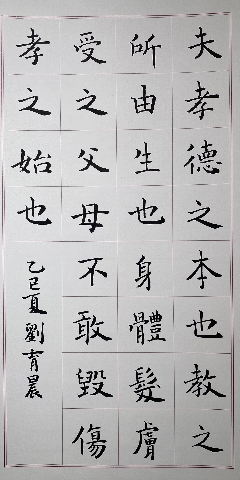 夫孝德之本也教之
所由生也身體髮膚
受之父母不敢毀傷
孝之始也
乙巳夏劉育晨